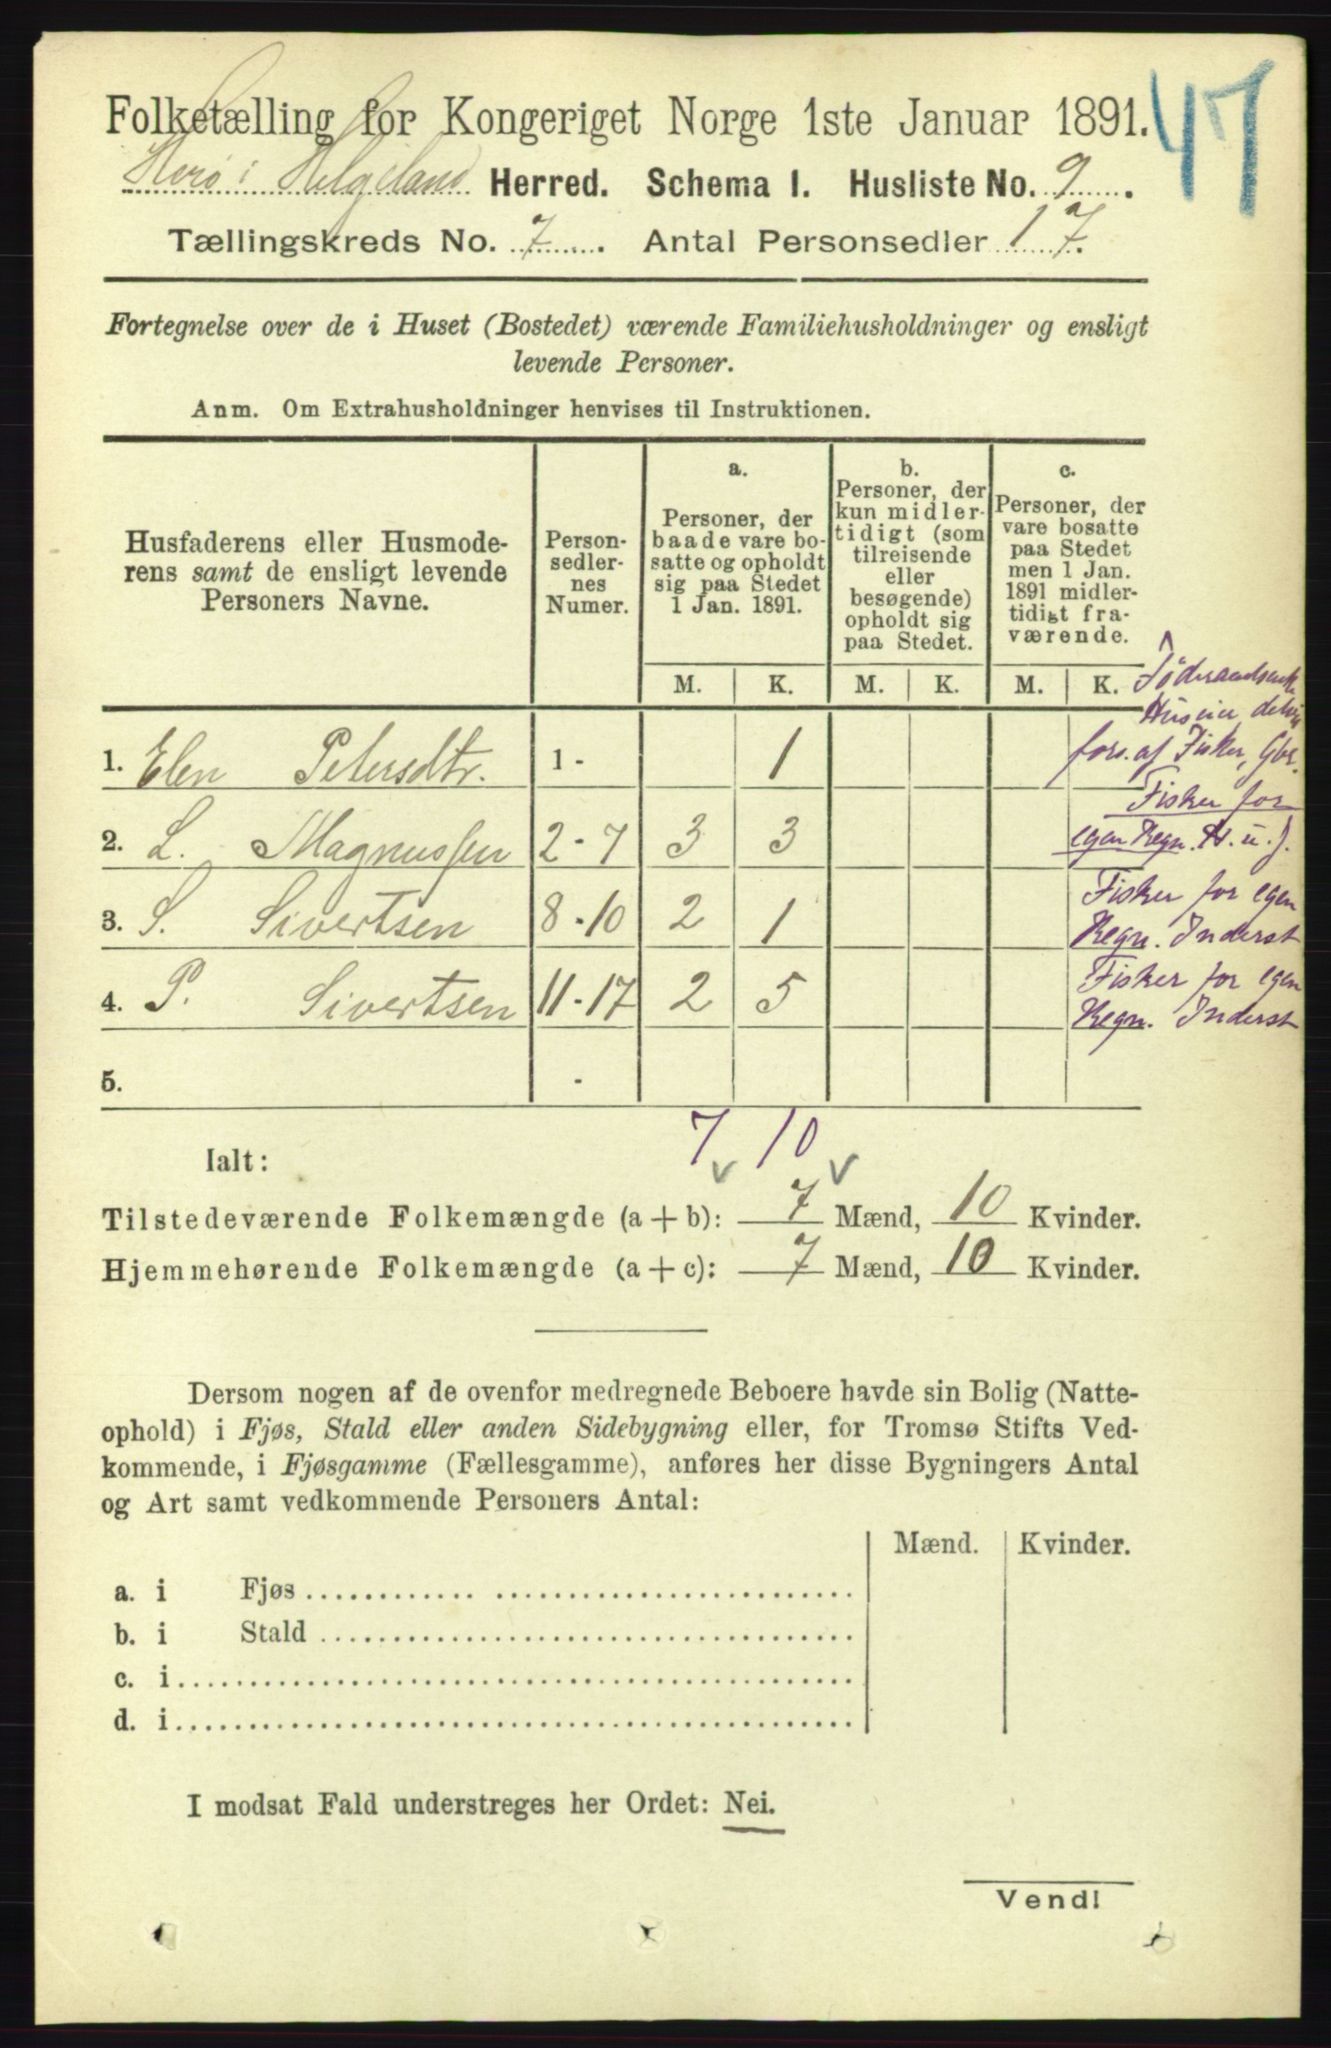 47
Folketælling for Kongeriget Norge 1ste Januar 1891.
Herø i Helgeland Herred. Schema I. Husliste No. 9.
Tællingskreds No. 7. Antal Personsedler 17.
Fortegnelse over de i Huset (Bostedet) værende Familiehusholdninger og ensligt
levende Personer.
Anm. Om Extrahusholdninger henvises til Instruktionen.
Husfaderens eller Husmode-
rens samt de ensligt levende
Personers Navne.
Person-
sedler-
nes
Numer.
a.
Personer, der
baade vare bo-
satte og opholdt
sig paa Stedet
1 Jan. 1891.
b.
Personer, der
kun midler-
tidigt (som
tilreisende
eller
besøgende)
opholdt sig
paa Stedet.
c.
Personer, der
vare bosatte
paa Stedet
men 1 Jan.
1891 midler-
tidigt fra-
værende.
M. K. M. K. M. K.
Huseier
1. Elen Petersdtr. 1 - 1 fors. af Fisker, Gbr.
Fisker for
2. L. Magnussen 2 - 7 3 3 egen Regn. H. u. J.
Fisker for egen
3. S. Sivertsen 8 - 10 2 1 Regn. Inderst
Fisker for egen
4. P. Sivertsen 11 - 17 2 5 Regn. Inderst
5. -
7 10
Ialt:
Tilstedeværende Folkemængde (a + b): 7 Mænd, 10 Kvinder.
Hjemmehørende Folkemængde (a + c): 7 Mænd, 10 Kvinder.
Dersom nogen af de ovenfor medregnede Beboere havde sin Bolig (Natte-
ophold) i Fjøs, Stald eller anden Sidebygning eller, for Tromsø Stifts Ved-
kommende, i Fjøsgamme (Fællesgamme), anføres her disse Bygningers Antal
og Art samt vedkommende Personers Antal:
Mænd. Kvinder.
a. i Fjøs
b. i Stald
c. i
d. i
I modsat Fald understreges her Ordet: Nei.
Vend!